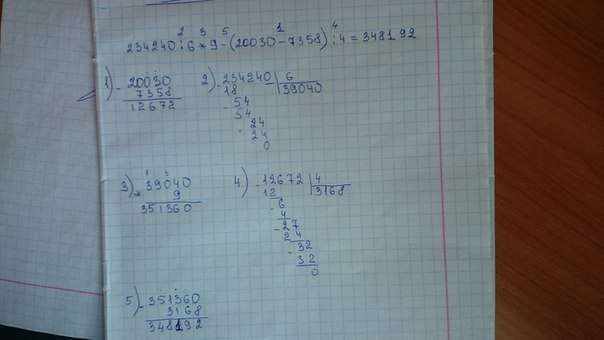 2 3 5 1 4
234240 : 6 * 9 - (20030 - 7358) : 4 = 348192
1) - 20030
7358
12672
2) - 234240 | 6
18 | 39040
- 54
54
- 24
24
0
3) 1 3
* 39040
9
351360
4) - 12672 | 4
12 | 3168
- 6
4
- 27
24
- 32
32
0
5) - 351360
3168
348192